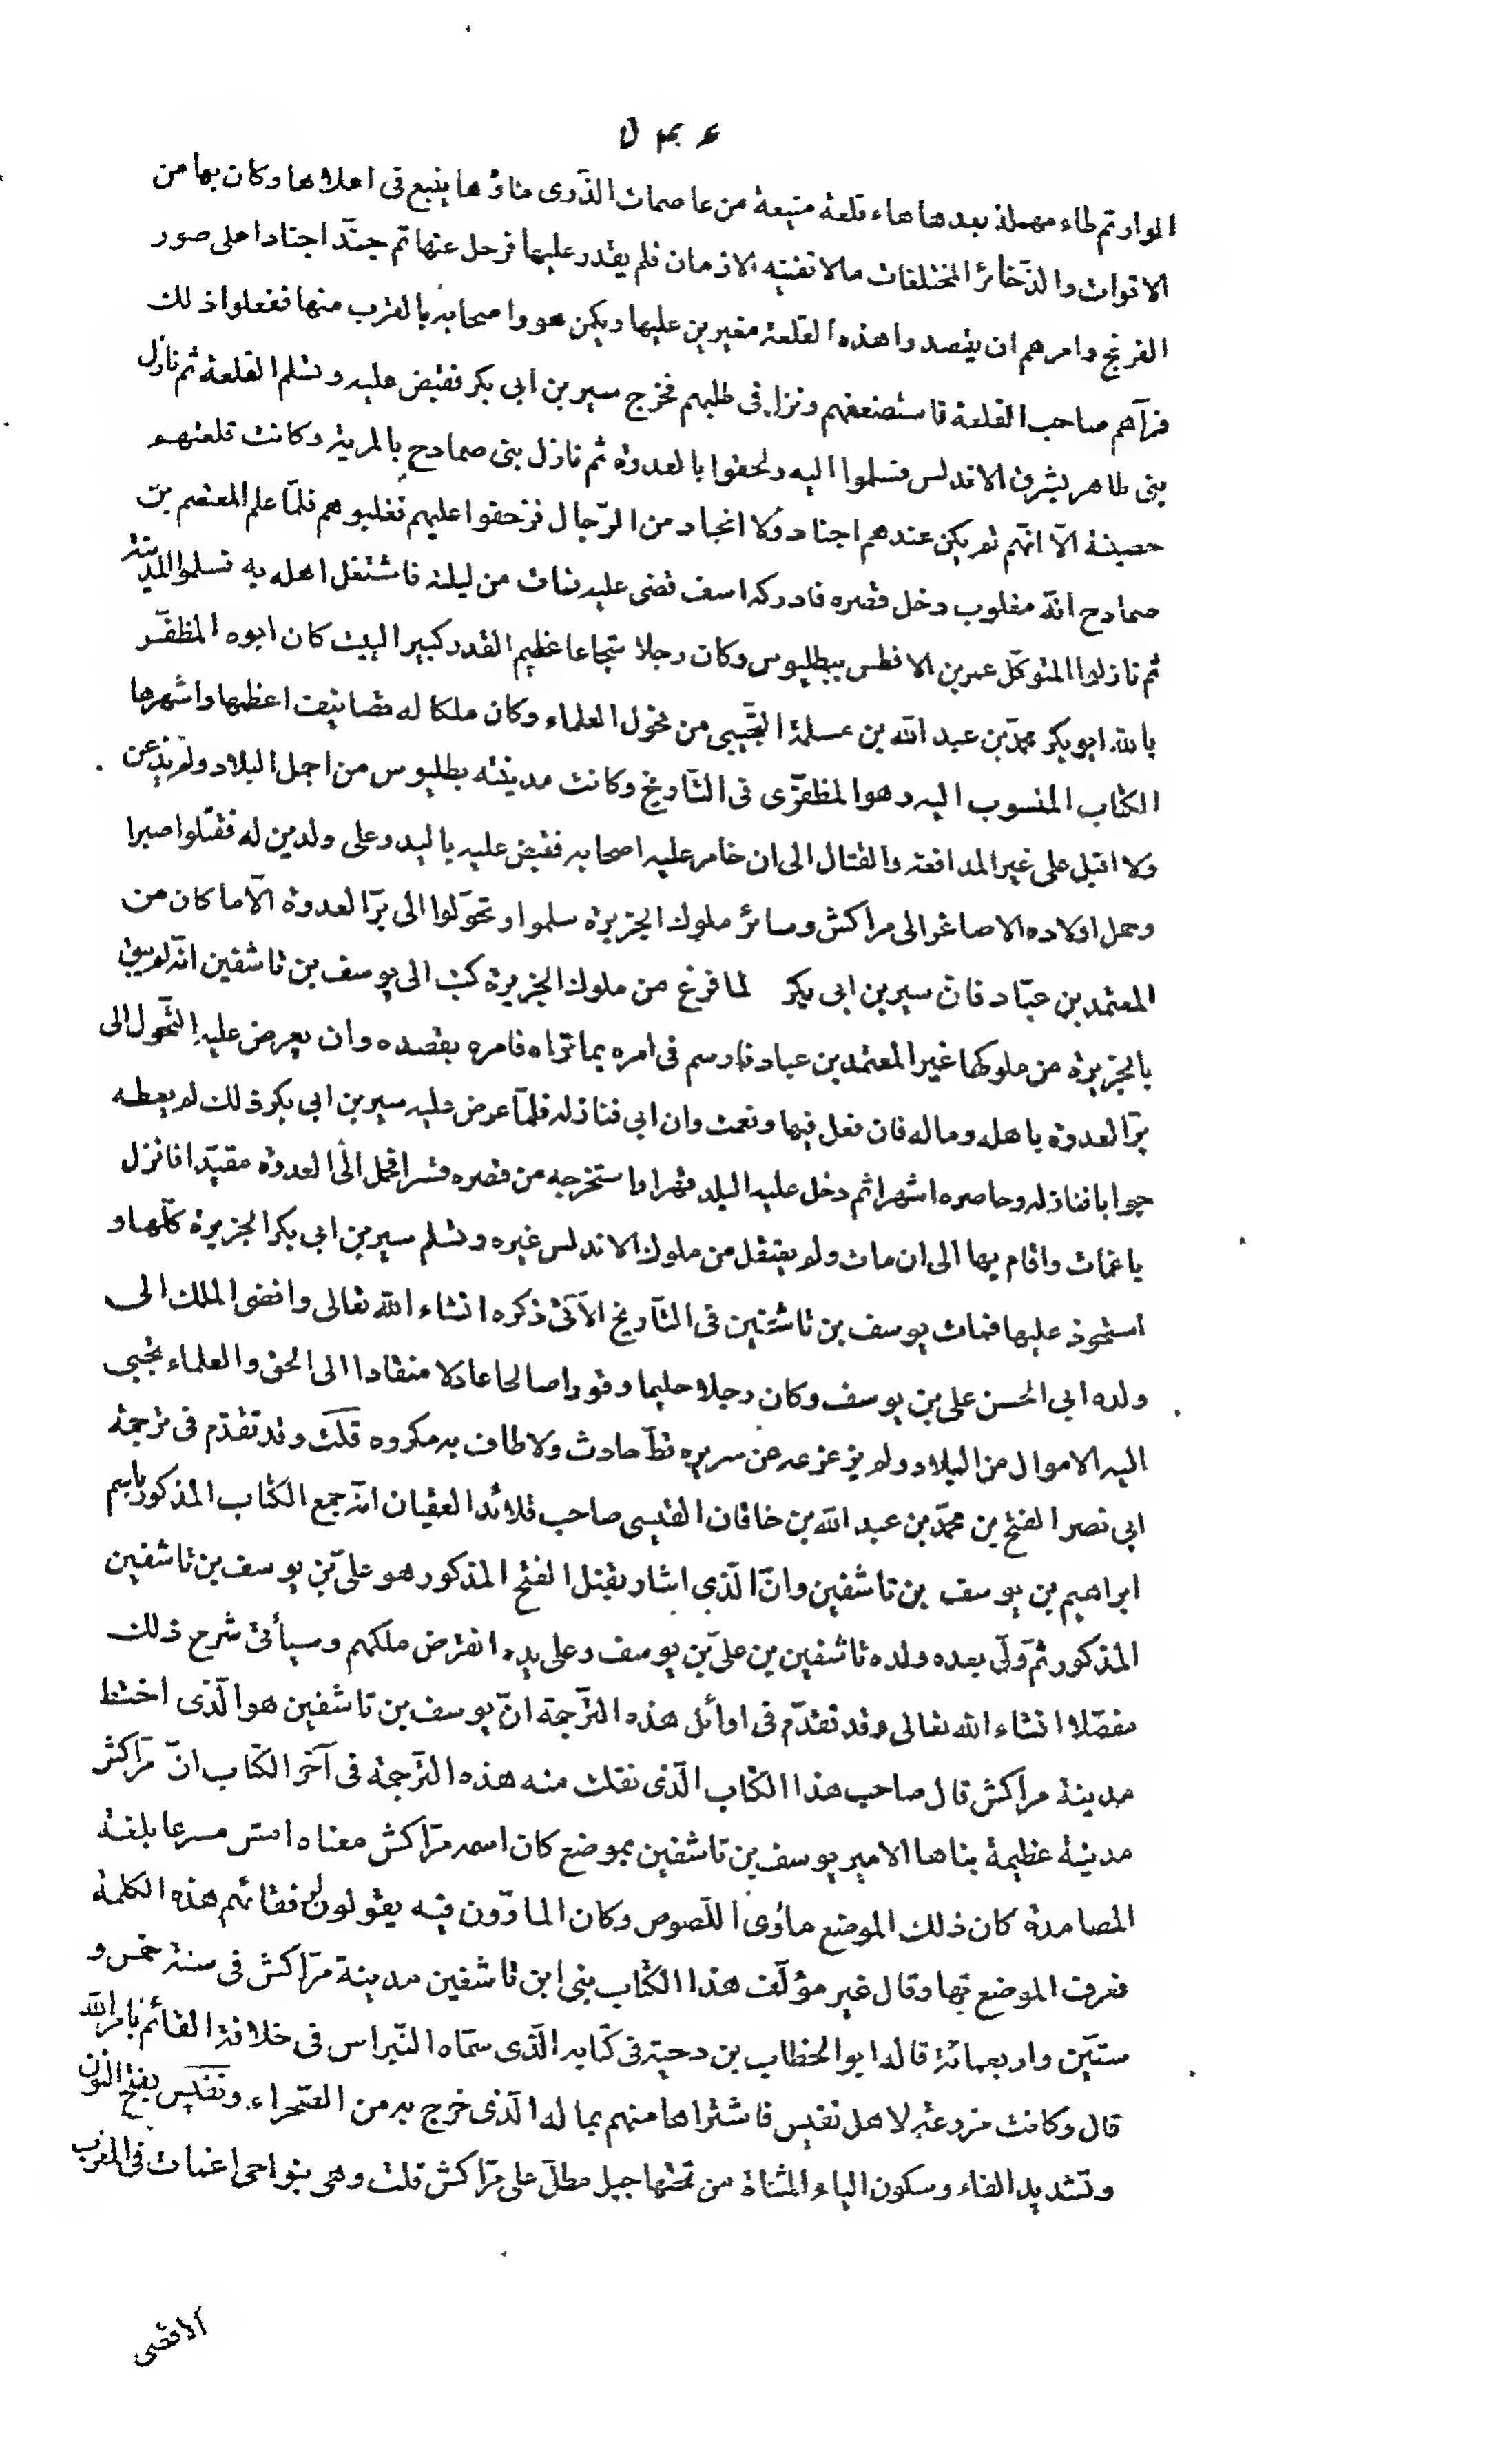 الواو ثم طاء مهملة بعدها هاء قلعة منيعة من عاصمات الذّرى ماؤها ينبع فى اعلاها وكان بها من
الاقوات والذّخائر المختلفات مالا تفنيه الازمان فلم يقدر عليها فرحل عنها ثم جنّد اجنادا على صور
الفرنج وامرهم ان يقصدوا هذه القلعة مغيرين عليها ويكمن هو واصحابه بالقرب منها ففعلوا ذلك
فرآهم صاحب القلعة فاستضعفهم ونزل فى طلبهم فخرج سير بن ابى بكر فقبض عليه وتسلم القلعة ثم نازل
بنى طاهر بشرق الاندلس فسلموا اليه ولحقوا بالعدوة ثم نازل بنى صمادح بالمرية وكانت قلعتهم
حصينة الّا انّهم لم يكن عندهم اجناد ولا انجاد من الرّجال فزحفوا عليهم فغلبوهم فلمّا علم المعتصم بن
صمادح انّه مغلوب دخل قصره فادركه اسف قضى عليه فمات من ليلته فاشتغل اهله به فسلموا المدينة
ثم نازلوا المتوكّل عمر بن الافطس ببطليوس وكان رجلا شجاعا عظيم القدر كبير البيت كان ابوه المظفّر
بالله ابو بكر محمّد بن عبد الله بن مسلمة التّجيبى من فحول العلماء وكان ملكا له تصانيف اعظمها واشهرها
الكتاب المنسوب اليه وهو المظفّرى فى التّاريخ وكانت مدينته بطليوس من اجمل البلاد ولم يذعن
ولا اقبل على غير المدافعة والقتال الى ان خامر عليه اصحابه فقبض عليه باليد وعلى ولدين له فقتلوا صبرا
وحمل اولاده الاصاغر الى مراكش وسائر ملوك الجزيرة سلموا وتحوّلوا الى برّ العدوة الّا ما كان من
المعتمد بن عبّاد فانّ سير بن ابى بكر لما فرغ من ملوك الجزيرة كتب الى يوسف بن تاشفين انّه لم يبق
بالجزيرة من ملوكها غير المعتمد بن عباد فارسم فى امره بما تراه فامره بقصده وان يعرض عليه التّحول الى
برّ العدوة باهله وماله فان فعل فبها ونعمت وان ابى فنازله فلمّا عرض عليه سير بن ابى بكر ذلك لم يعطه
جوابا فنازله وحاصره اشهرا ثم دخل عليه البلد قهرا واستخرجه من قصره قسرا فحمل الى العدوة مقيّدا فانزل
باغمات واقام بها الى ان مات ولم يعتقل من ملوك الاندلس غيره وتسلم سير بن ابى بكر الجزيرة كلّها و
استحوذ عليها فمات يوسف بن تاشفين فى التّاريخ الآتى ذكره انشاء الله تعالى وافضى الملك الى
ولده ابى الحسن على بن يوسف وكان رجلا حليما وقورا صالحا عادلا منقادا الى الحق والعلماء يجبى
اليه الاموال من البلاد ولم يزعزعه عن سريره قطّ حادث ولا طاف به مكروه قلت وقد تقدّم فى ترجمة
ابى نصر الفتح بن محمّد بن عبد الله بن خاقان القيسى صاحب قلائد العقيان انّه جمع الكتاب المذكور باسم
ابراهيم بن يوسف بن تاشفين وانّ الّذى اشار بقتل الفتح المذكور هو علىّ بن يوسف بن تاشفين
المذكور ثمّ ولّى بعده ولده تاشفين بن علىّ بن يوسف وعلى يده انقرض ملكهم وسيأتى شرح ذلك
مفصّلا انشاء الله تعالى وقد تقدّم فى اوائل هذه التّرجمة انّ يوسف بن تاشفين هو الّذى اختط
مدينة مراكش قال صاحب هذا الكتاب الّذى نقلت منه هذه التّرجمة فى آخر الكتاب انّ مرّاكش
مدينة عظيمة بناها الامير يوسف بن تاشفين بموضع كان اسمه مرّاكش معناه امش مسرعا بلغة
المصامدة كان ذلك الموضع مأوى اللّصوص وكان المارّون فيه يقولون لرفقائهم هذه الكلمة
فعرف الموضع بها وقال غير مؤلّف هذا الكتاب بنى ابن تاشفين مدينة مرّاكش فى سنة خمس و
ستّين واربعمائة قاله ابو الخطاب بن دحية فى كتابه الّذى سمّاه النّبراس فى خلافة القائم بامر الله
قال وكانت مزرعة لاهل نفيس فاشتراها منهم بماله الّذى خرج به من الصّحراء ونفيس بفتح النون
وتشديد الفاء وسكون الياء المثناة من تحتها جبل مطلّ على مرّاكش قلت وهى بنواحى اغمات فى المغرب
الاقصى